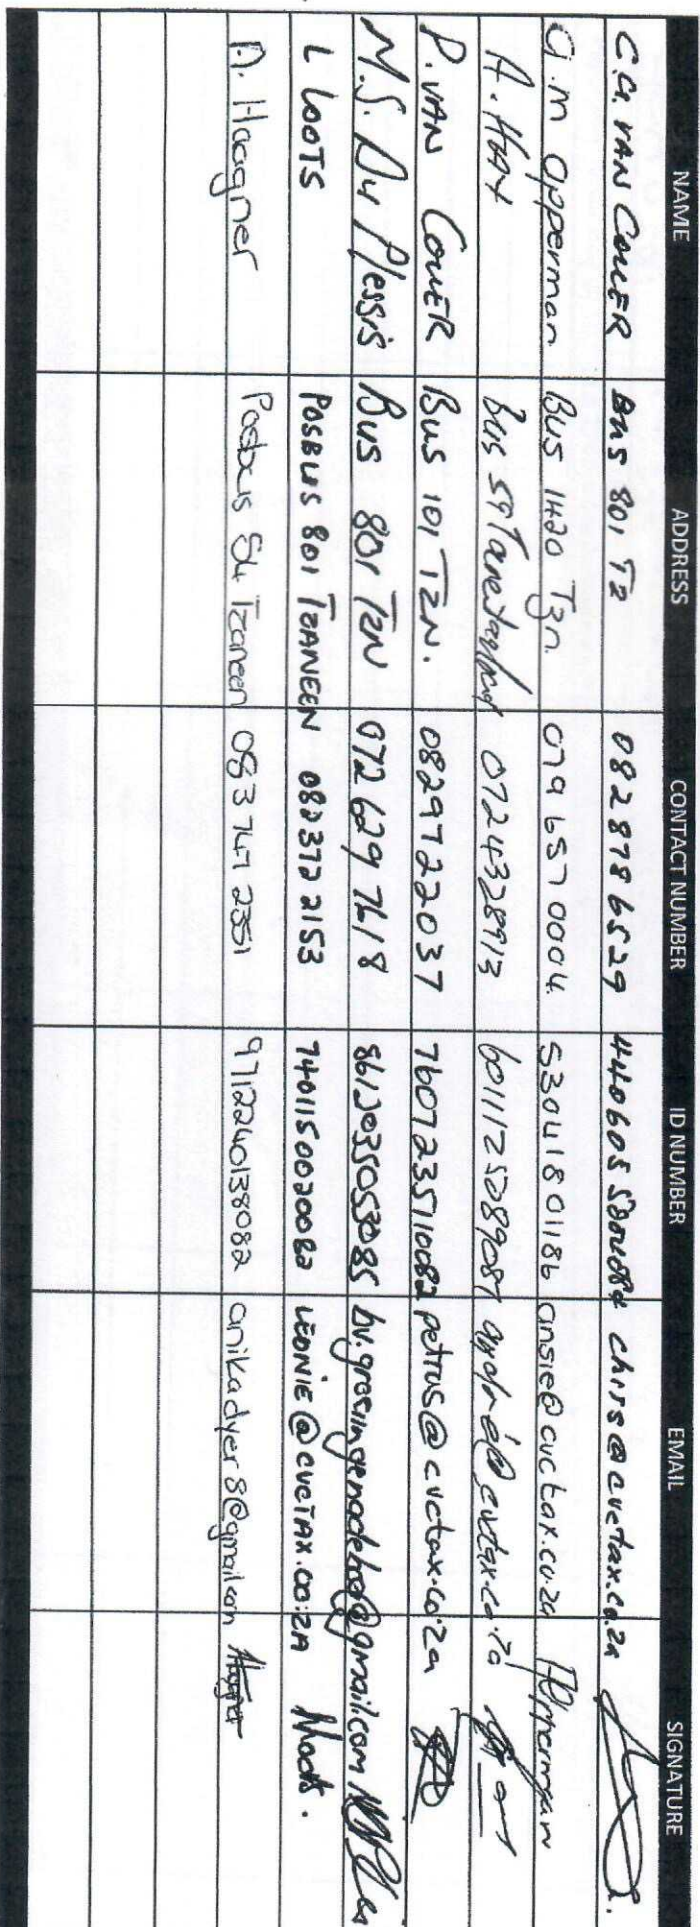 NAME ADDRESS CONTACT NUMBER ID NUMBER EMAIL SIGNATURE
C.G. VAN COLLER BUS 801 TZ 082 878 6529 chris@cvctax.co.za
A.m Opperman Bus 1420 Tzn. 079 657 0004. ansie@cvctax.co.za
A. Bus 59 0724328913 6011125089087 @cvctax.co.za
P. VAN COLLER Bus 101 TZN. 0829722037 7607235110082 petrus@cvctax.co.za
M.S. Du Plessis Bus 801 TZN 072 629 7618 8612035053085
L LOOTS POSBUS 801 TZANEEN 082 372 2153 7401150020082 LEONIE@CVCTAX.CO.ZA
A. Haagner Posbus 54 Tzaneen 083 747 2351 9712240138082 anikadyer8@gmail.com